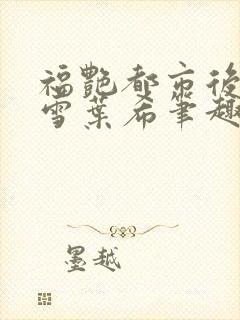 福艷都市後
雪葉希筆趣
墨越